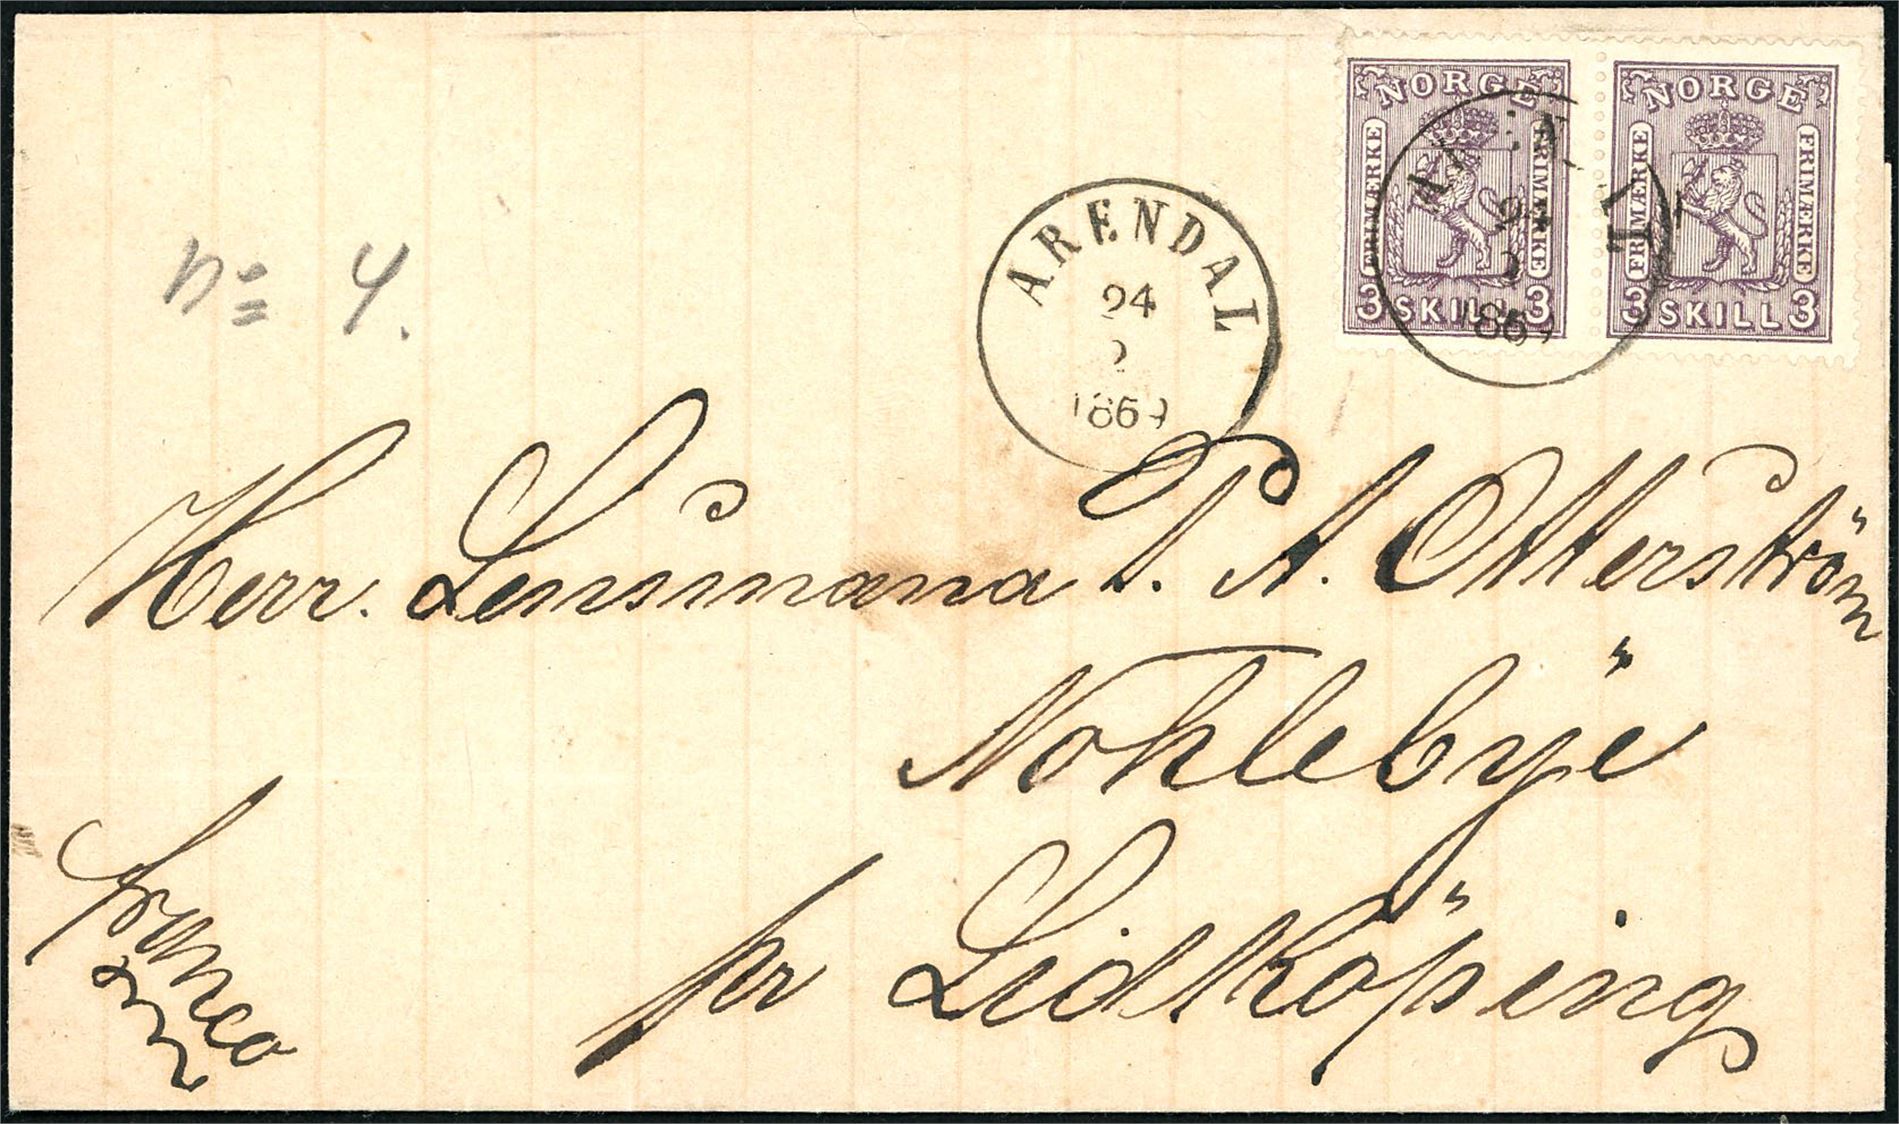 NORGE NORGE
FRIMÆRKE FRIMÆRKE FRIMÆRKE FRIMÆRKE
3 SKILL 3 3 SKILL 3
ARENDAL
24
2
1869
24
2
1869
No 4.
Herr. Lensmana P. A. Otterström
Nohlebye
pr Lidköping
franco